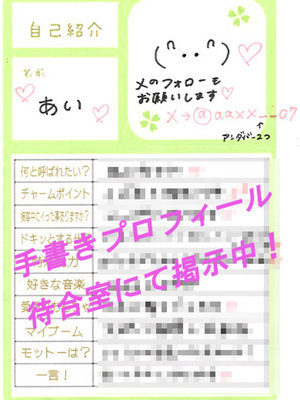 自己紹介
名前
あい
(^..^)
Xのフォローも
お願いします
X→@aaxx__07
↑
アンダーバー2つ
何と呼ばれたい?
チャームポイント
ドキッとする仕草
好きな音楽
マイブーム
モットーは?
一言!
手書きプロフィール
待合室にて掲示中!